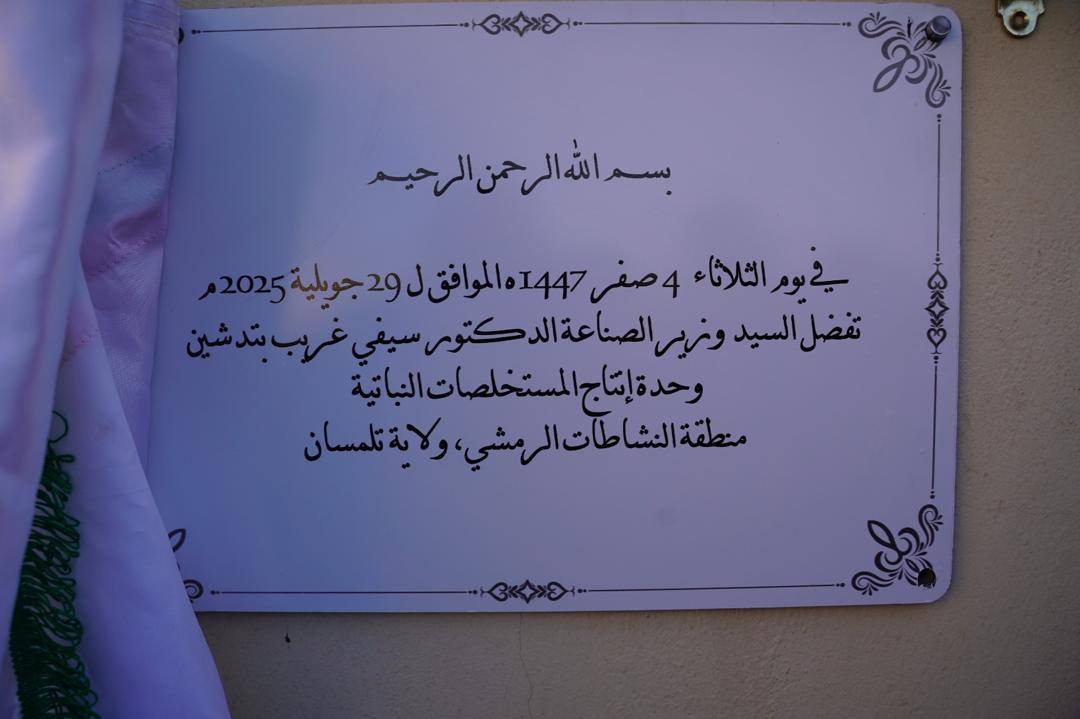 بسم الله الرحمن الرحيم
في يوم الثلاثاء 4 صفر 1447ه الموافق ل 29 جويلية 2025م
تفضل السيد وزير الصناعة الدكتور سيفي غريب بتدشين
وحدة إنتاج المستخلصات النباتية
منطقة النشاطات الرمشي، ولاية تلمسان